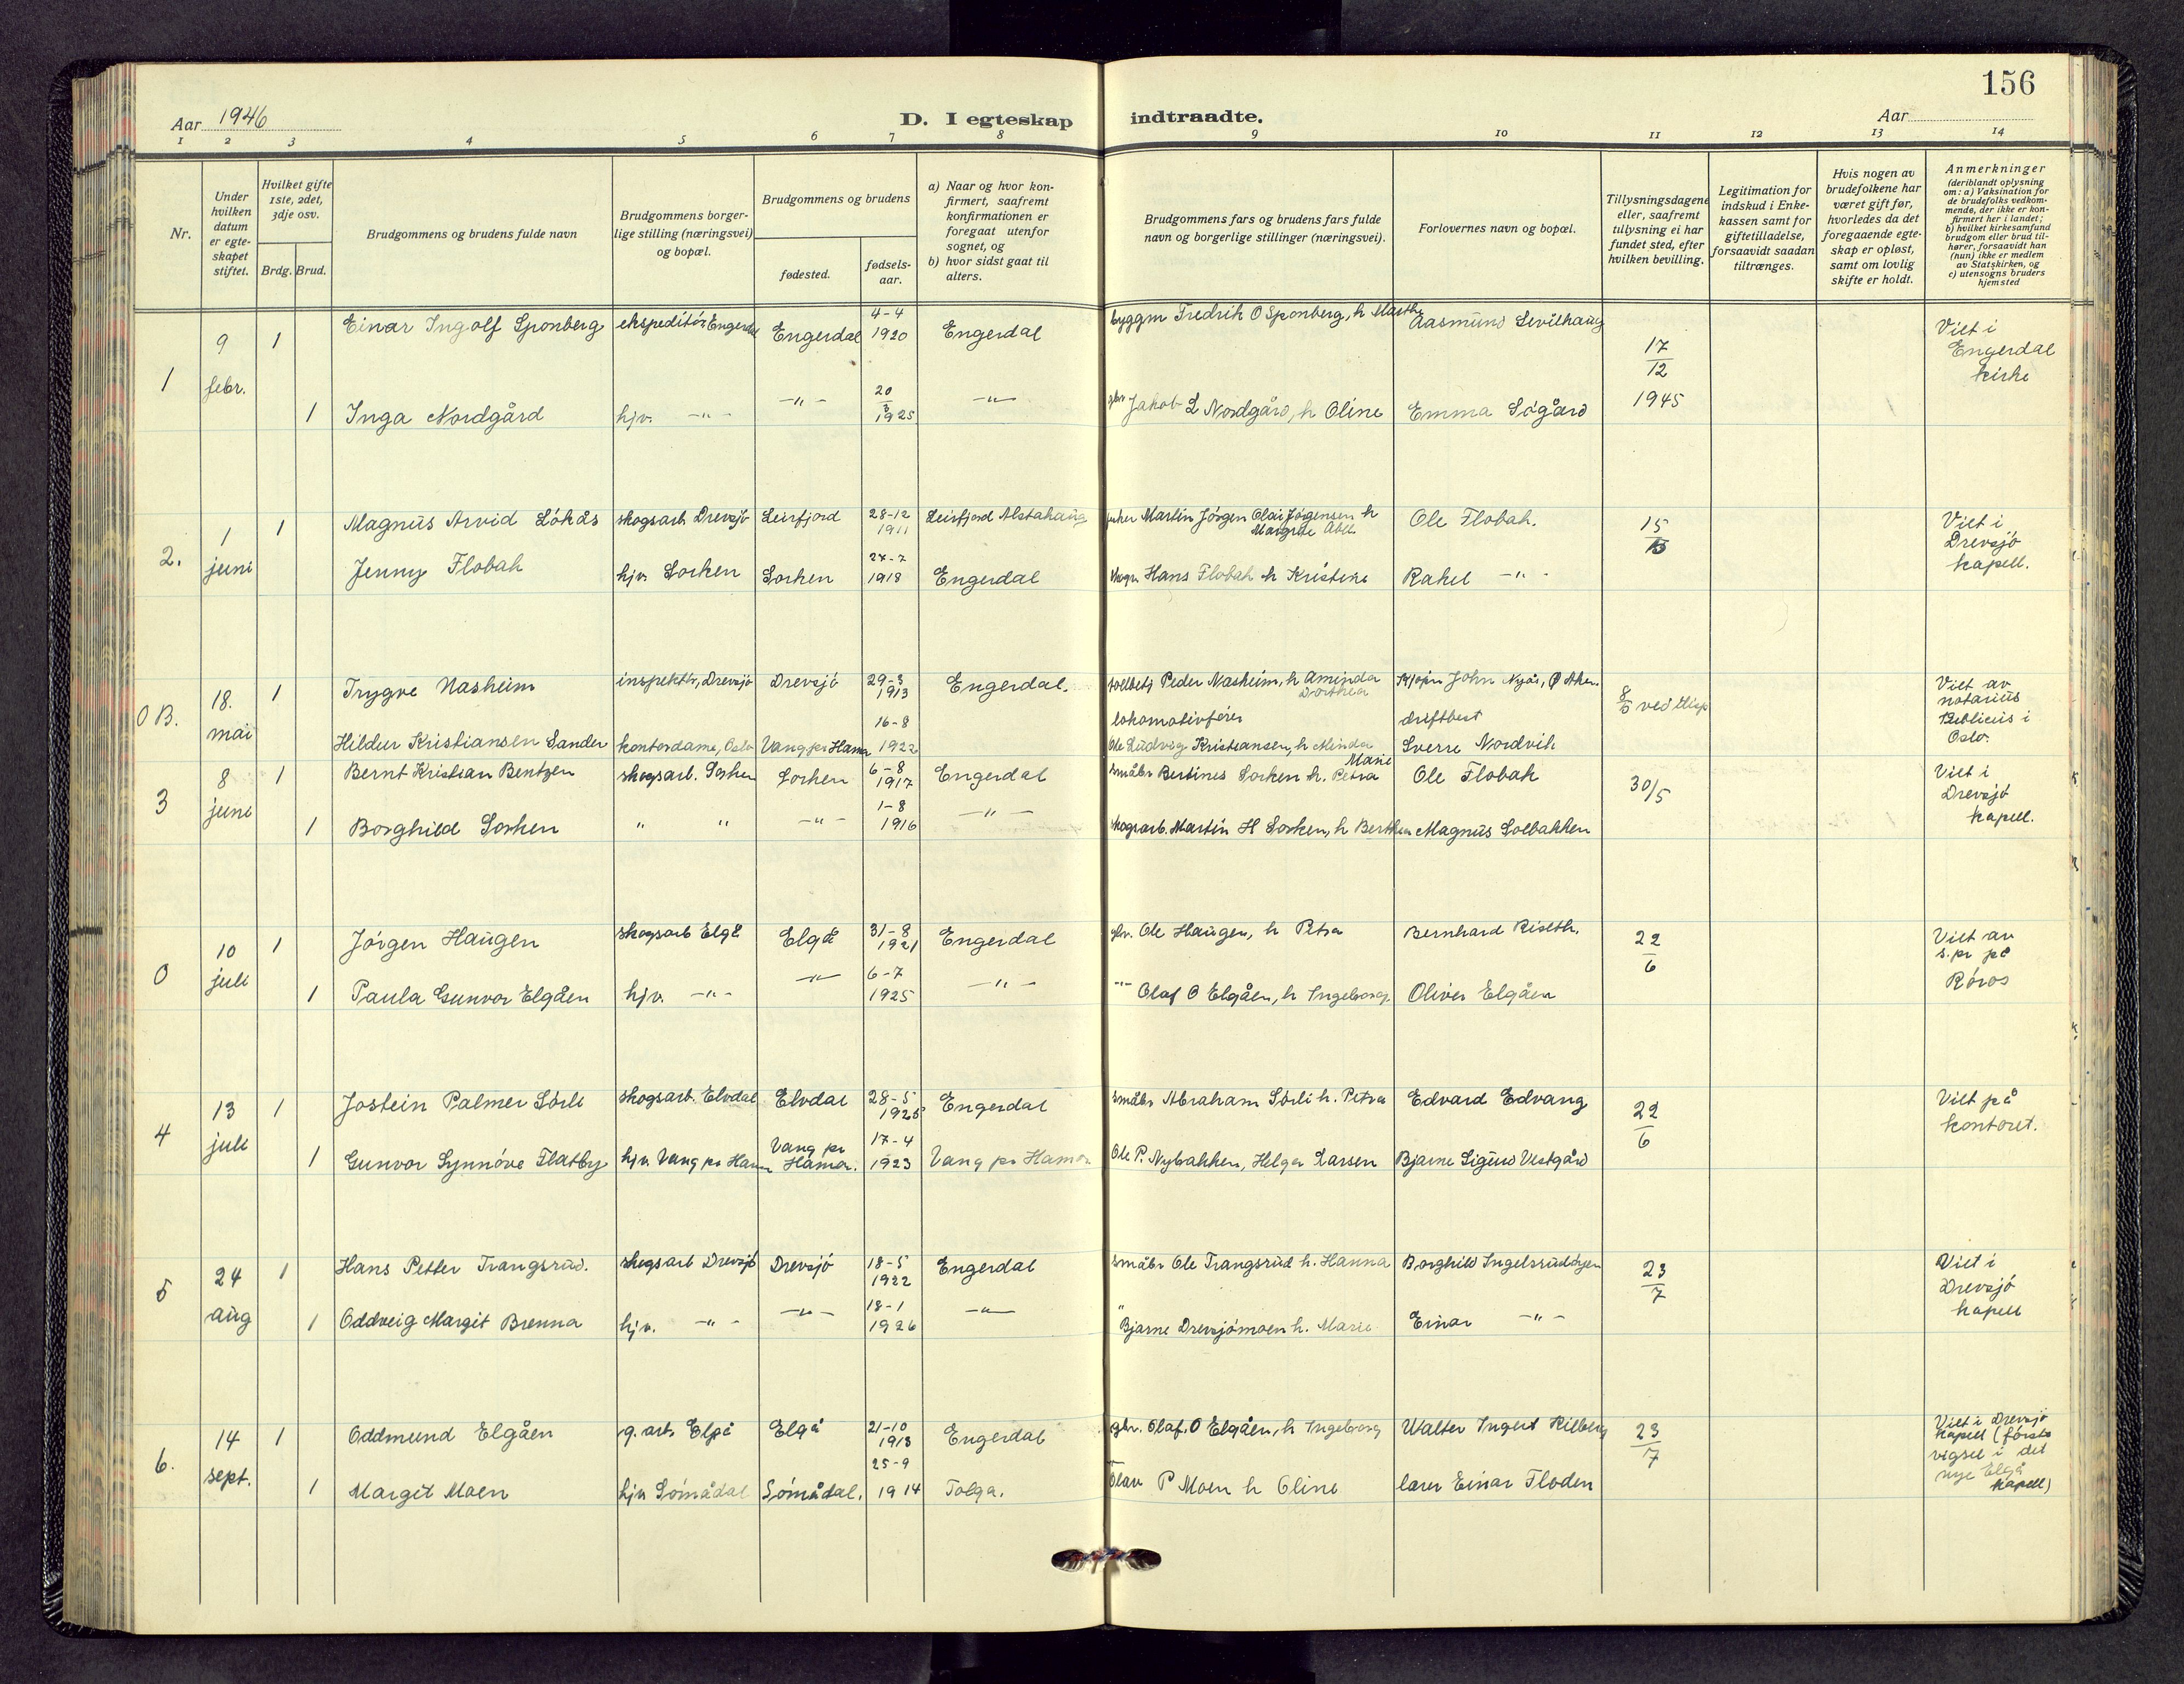 156
Aar 1946
D. I egteskap indtraadte.
Aar
1 2 3 4 5 6 7 8 9 10 11 12 13 14
Nr.
Under hvilken datum er egteskapet stiftet.
Hvilket gifte 1ste, 2det, 3dje osv.
Brdg. Brud.
Brudgommens og brudens fulde navn
Brudgommens borgerlige stilling (næringsvei) og bopæl.
Brudgommens og brudens
fødested.
fødselsaar.
a) Naar og hvor konfirmert, saafremt konfirmationen er foregaat utenfor sognet, og
b) hvor sidst gaat til alters.
Brudgommens fars og brudens fars fulde navn og borgerlige stillinger (næringsvei).
Forlovernes navn og bopæl.
Tillysningsdagene eller, saafremt tillysning ei har fundet sted, efter hvilken bevilling.
Legitimation for indskud i Enkekassen samt for giftetilladelse, forsaavidt saadan tiltrænges.
Hvis nogen av brudefolkene har været gift før, hvorledes da det foregaaende egteskap er opløst, samt om lovlig skifte er holdt.
Anmerkninger (deriblandt oplysning om: a) Vaksination for de brudefolks vedkommende, der ikke er konfirmert her i landet; b) hvilket kirkesamfund brudgom eller brud tilhører, forsaavidt han (hun) ikke er medlem av Statskirken, og c) utensogns bruders hjemsted
1 9 febr. 1 Einar Ingolf Sponberg ekspeditör Engerdal Engerdal 4-4 1920 Engerdal byggm Fredrik O Sponberg, h Marthe Aasmund Levilhaug 17/12 1945 Viet i Engerdal kirke
1 Inga Nordgård hjv. -"- -"- 20/3 1925 -"- gbr Jakob L Nordgård, h Oline Emma Sögård
2. 1 juni 1 Magnus Arvid Lökås skogsarb. Drevsjö Leirfjord 28-12 1911 Leirfjord Alstahaug fisker Martin Jörgen Olai Jörgensen h Margrete Ole Flobak. 15 Viet i Drevsjö kapell.
Jenny Flobak hjv. Sorken Sorken 27-7 1918 Engerdal Hans Flobak h Kristine Rakel -"-
0 B. 18. mai 1 Trygve Nasheim inspektör, Drevsjö Drevsjö 29-3 1913 Engerdal. tollbetj Peder Nasheim, h Aminda Dorthea John Nyås, 8/5 Viet av notarius Publicus i Oslo.
Hildur Kristiansen Sander kontordame, Oslo Vang pr Hamar 16-8 1922 lokomotivförer Ole Ludvig Kristiansen, h Minda Marie driftbest Sverre Nordvik
3 8 juni 1 Bernt Kristian Bentzen skogsarb. Sorken Sorken 6-8 1917 Engerdal småbr Bertines Sorken h. Petra Ole Flobak 30/5 Viet i Drevsjö kapell.
1 Borghild Sorken " " -"- 1-8 1916 -"- skogsarb. Martin H Sorken, h Berthea Magnus Solbakken
0 10 juli 1 Jörgen Haugen skogsarb Elgå Elgå 31-8 1921 Engerdal gbr. Ole Haugen, h Petra Bernhard Riseth. 22/6 Viet av s.pr på Röros
1 Paula Gunvor Elgåen hjv. -"- -"- 6-7 1925 -"- -"- Olaf O Elgåen, h Ingeborg. Oliver Elgåen
4 13 juli 1 Jostein Palmer Sörli skogsarb. Elvdal Elvdal 28-5 1925 Engerdal småbr Abraham Sörli h. Petra Edvard Edvang 22/6 Viet på kontoret.
1 Gunvor Synnöve Flatby hjv. Vang pr Hamar Vang pr Hamar. 17-4 1923 Vang pr Hamar Ole P. Nybakken, Helga Larsen Bjarne Sigurd Vestgård
5 24 aug 1 Hans Petter Trangsrud. skogsarb Drevsjö Drevsjö 18-5 1922 Engerdal småbr Ole Trangsrud h. Hanna Borghild Ingelsrudöyen 23/7 Viet i Drevsjö kapell
1 Oddveig Margit Brenna hjv. -"- -"- 18-1 1926 -"- " Bjarne Drevsjömoen h. Marie Einar -"-
6. 14 sept. 1 Oddmund Elgåen g.arb. Elgå Elgå 21-10 1913 Engerdal gbr. Olaf. O Elgåen, h Ingeborg Walter Ingert Kilberg 23/7 Viet i Drevsjö kapell (förste vigsel i det nye Elgå kapell)
1 Margit Moen hjv. Sömådal Sömådal. 25-9 1914 Tolga. Olav P Moen h Oline lærer Einar Floden